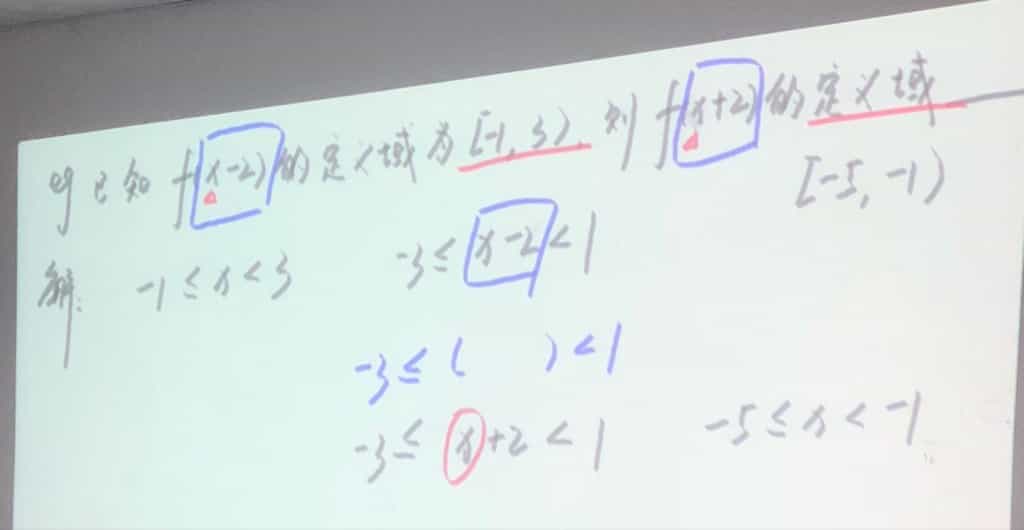 eg 已知 f(x-2)的定义域为[-1,3),则f(x+2)的定义域
[-5,-1)
解: -1≤x<3 -3≤x-2<1
-3≤( )<1
-3≤x+2<1 -5≤x<-1